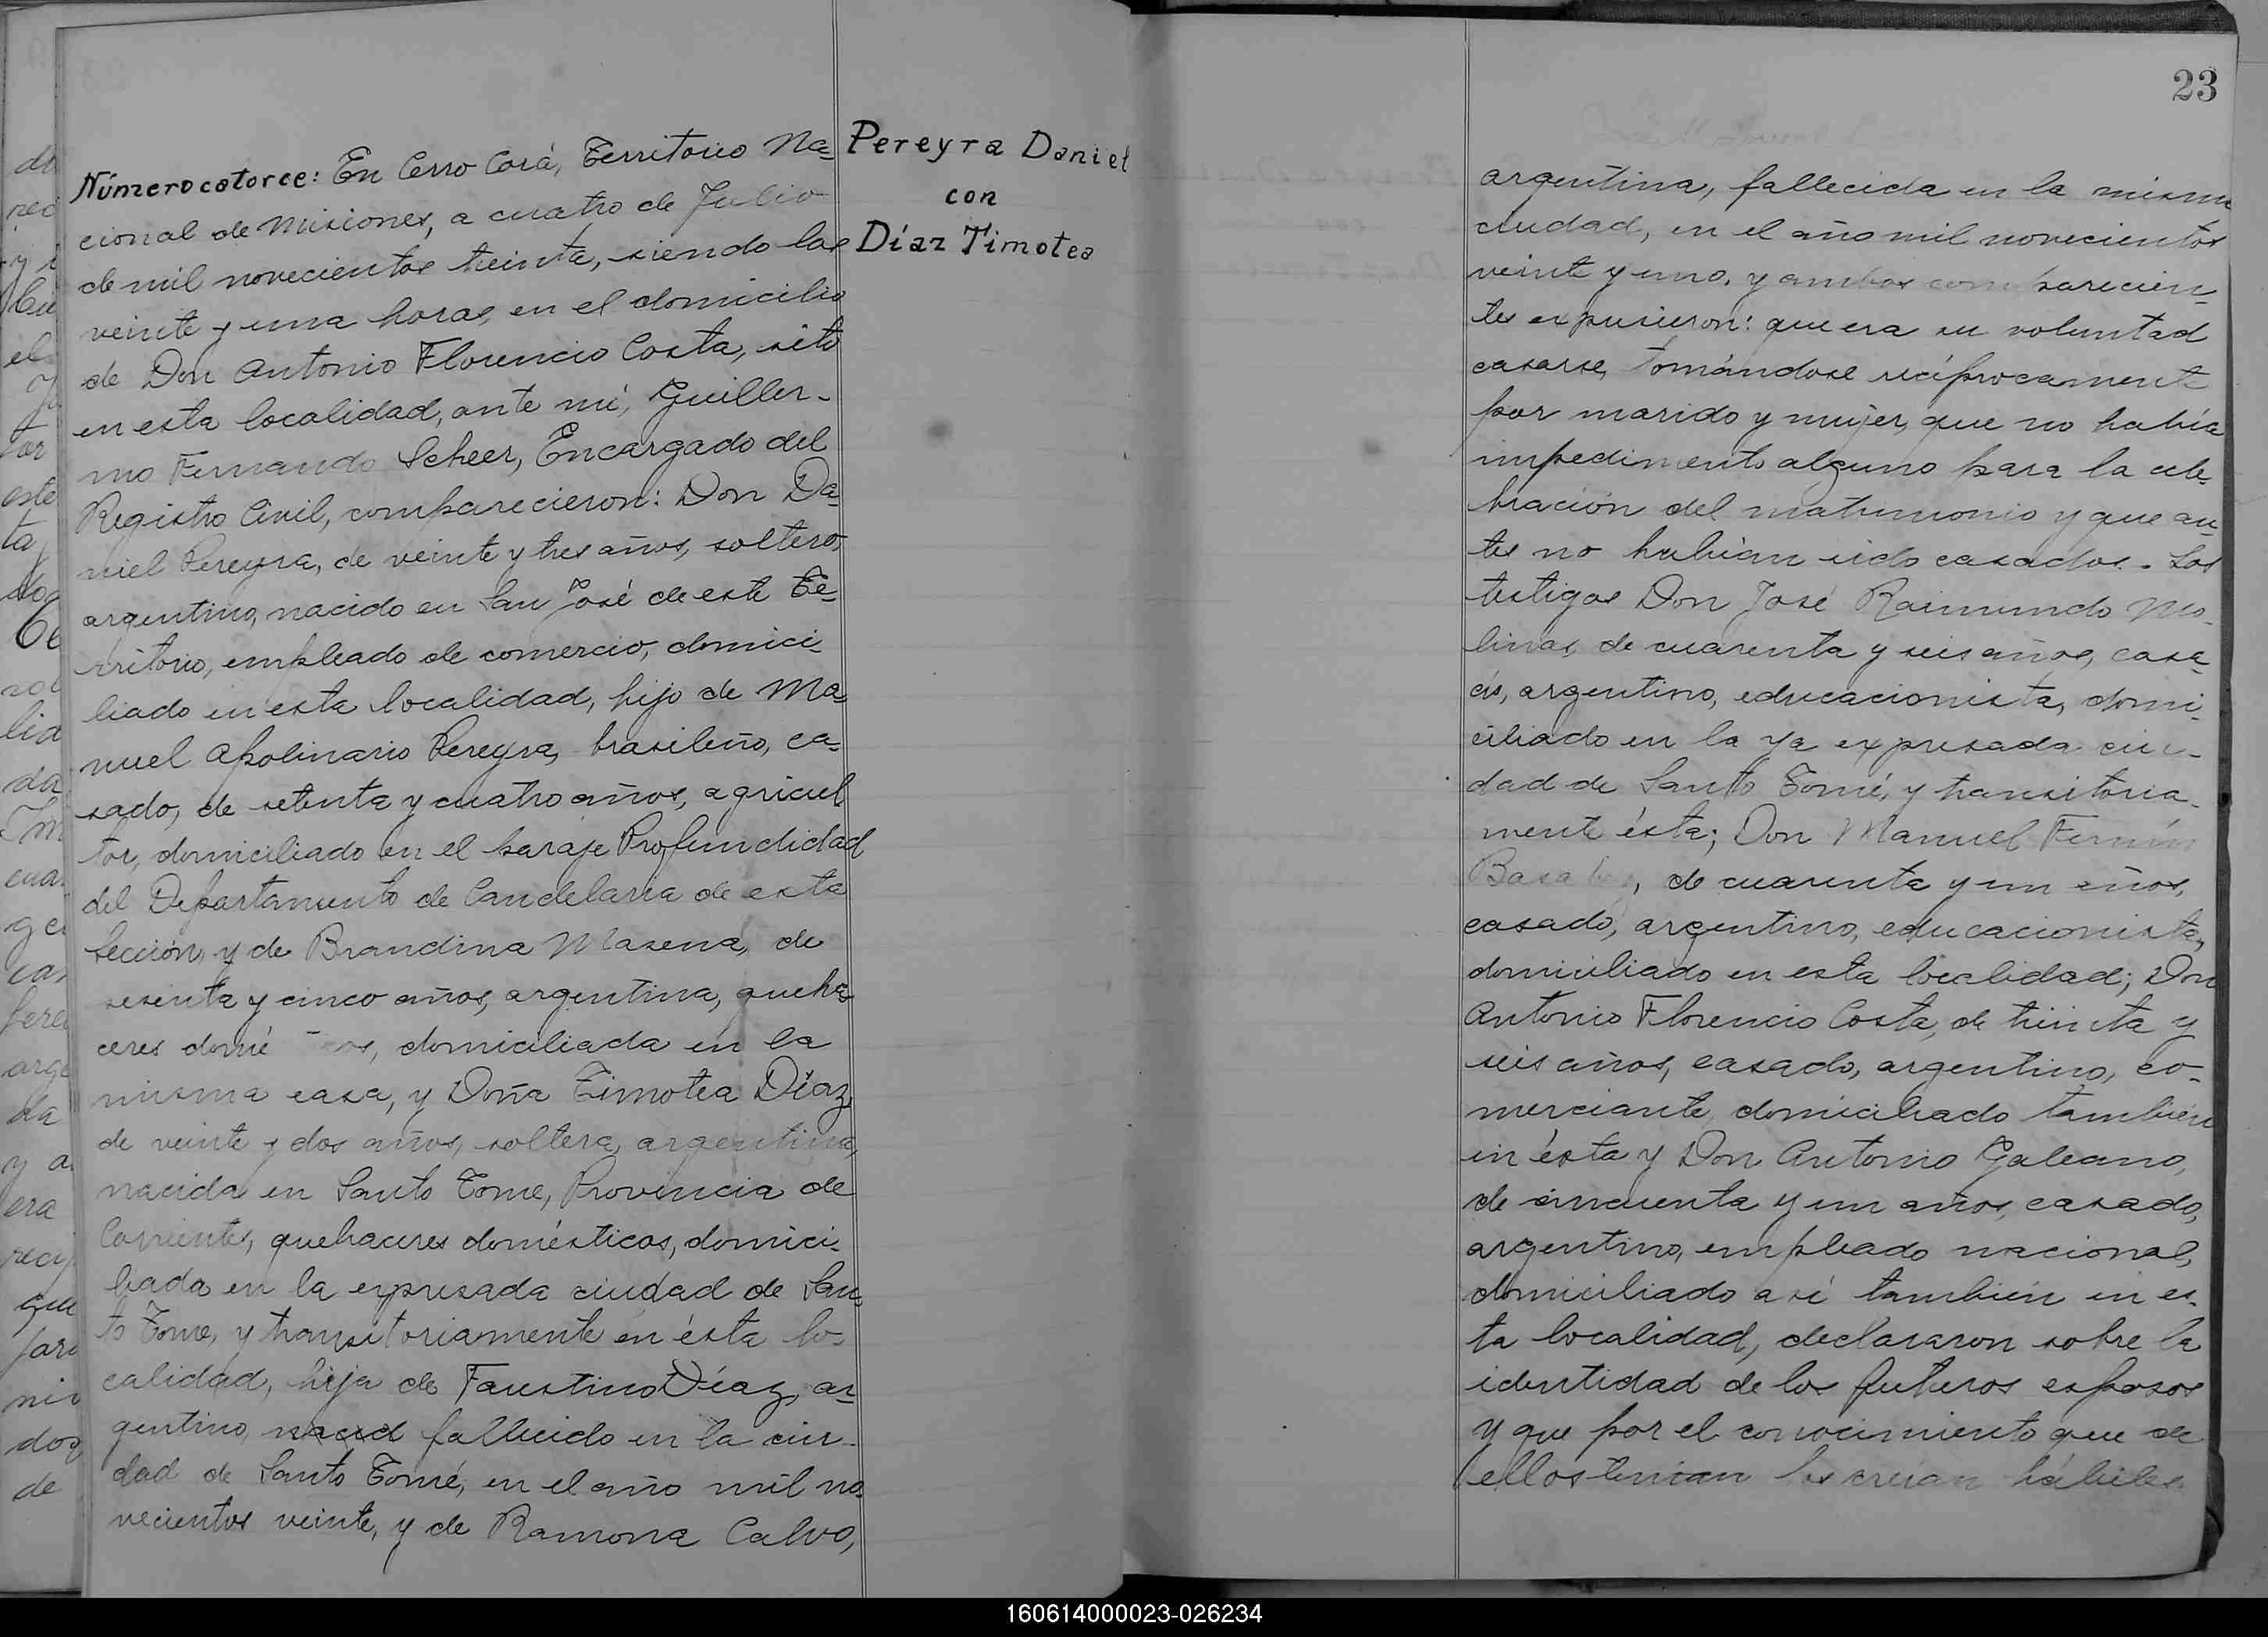 Número catorce: En Cerro Corá, Territorio Na-
cional de Misiones, a cuatro de Julio
de mil novecientos treinta, siendo las
veinte y una horas, en el domicilio
de Don Antonio Florencio Costa, sito
en esta localidad, ante mi, Guiller-
mo Fernando Scheer, Encargado del
Registro Civil, comparecieron: Don Da-
niel Pereyra, de veinte y tres años, soltero,
argentino, nacido en San José de este Te-
rritorio, empleado de comercio, domici-
liado en esta localidad, hijo de Ma-
nuel Apolinario Pereyra, brasileño, ca-
sado, de setenta y cuatro años, agricul
tor, domiciliado en el paraje Profundidad
del Departamento de Candelaria de esta
sección, y de Brandina Masena, de
sesenta y cinco años, argentina, queha-
ceres domé cos, domiciliada en la
misma casa, y Doña Timotea Díaz,
de veinte y dos años, soltera, argentina,
nacida en Santo Tome, Provincia de
Corrientes, quehaceres domésticos, domici-
liada en la expresada ciudad de San-
to Tome, y transitoriamente en ésta lo-
calidad, hija de Faustino Díaz, ar-
gentino, nacid fallecido en la ciu-
dad de Santo Tomé, en el año mil no-
vecientos veinte, y de Ramona Calvo,
Pereyra Daniel
con
Díaz Timotea
23
argentina, fallecida en la misma
ciudad, en el año mil novecientos
veinte y uno, y ambos comparecien-
tes expusieron: que era su voluntad
casarse, tomándose recíprocamente
por marido y mujer, que no había
impedimento alguno para la cele-
bración del matrimonio y que an-
tes no habían sido casados. Los
testigos Don José Raimundo Mo-
linas, de cuarenta y seis años, casa-
do, argentino, educacionista, domi-
ciliado en la ya expresada ciu-
dad de Santo Tomé, y transitoria-
mente ésta; Don Manuel Fermín
, de cuarenta y un años,
casado, argentino, educacionista,
domiciliado en esta localidad; Don
Antonio Florencio Costa, de treinta y
seis años, casado, argentino, co-
merciante, domiciliado también
en ésta y Don Antonio Galeano,
de cincuenta y un años, casado,
argentino, empleado nacional,
domiciliado así también en es-
ta localidad, declararon sobre la
identidad de los futuros esposos
y que por el conocimiento que de
ellos tenían los creían hábiles
160614000023-026234